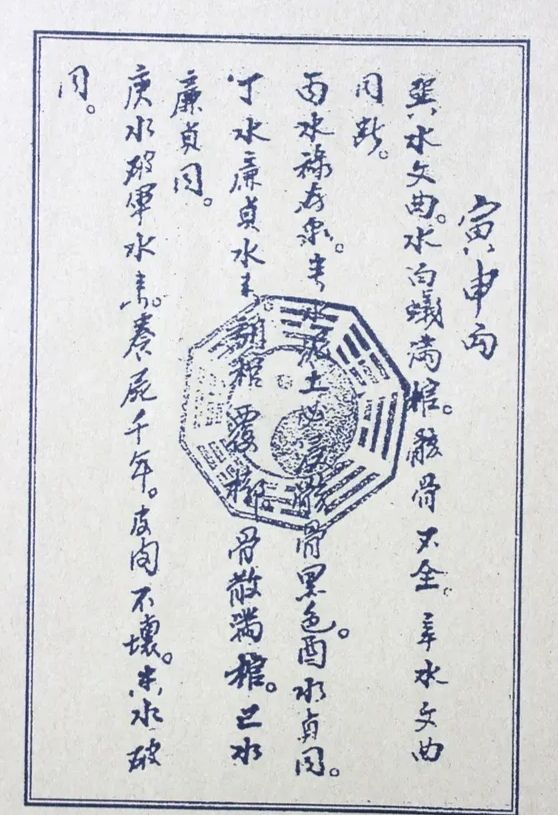 寅申
巽水文曲。水白蟻満棺。骸骨不全。辛水文曲
同断。
丙水禄存。水泥土骸骨黑色。酉水貞同。
丁水廉貞水翻棺覆槨骨散満棺。巳水
廉貞同。
庚水破軍水。養屍千年。皮肉不壞。水破
同。